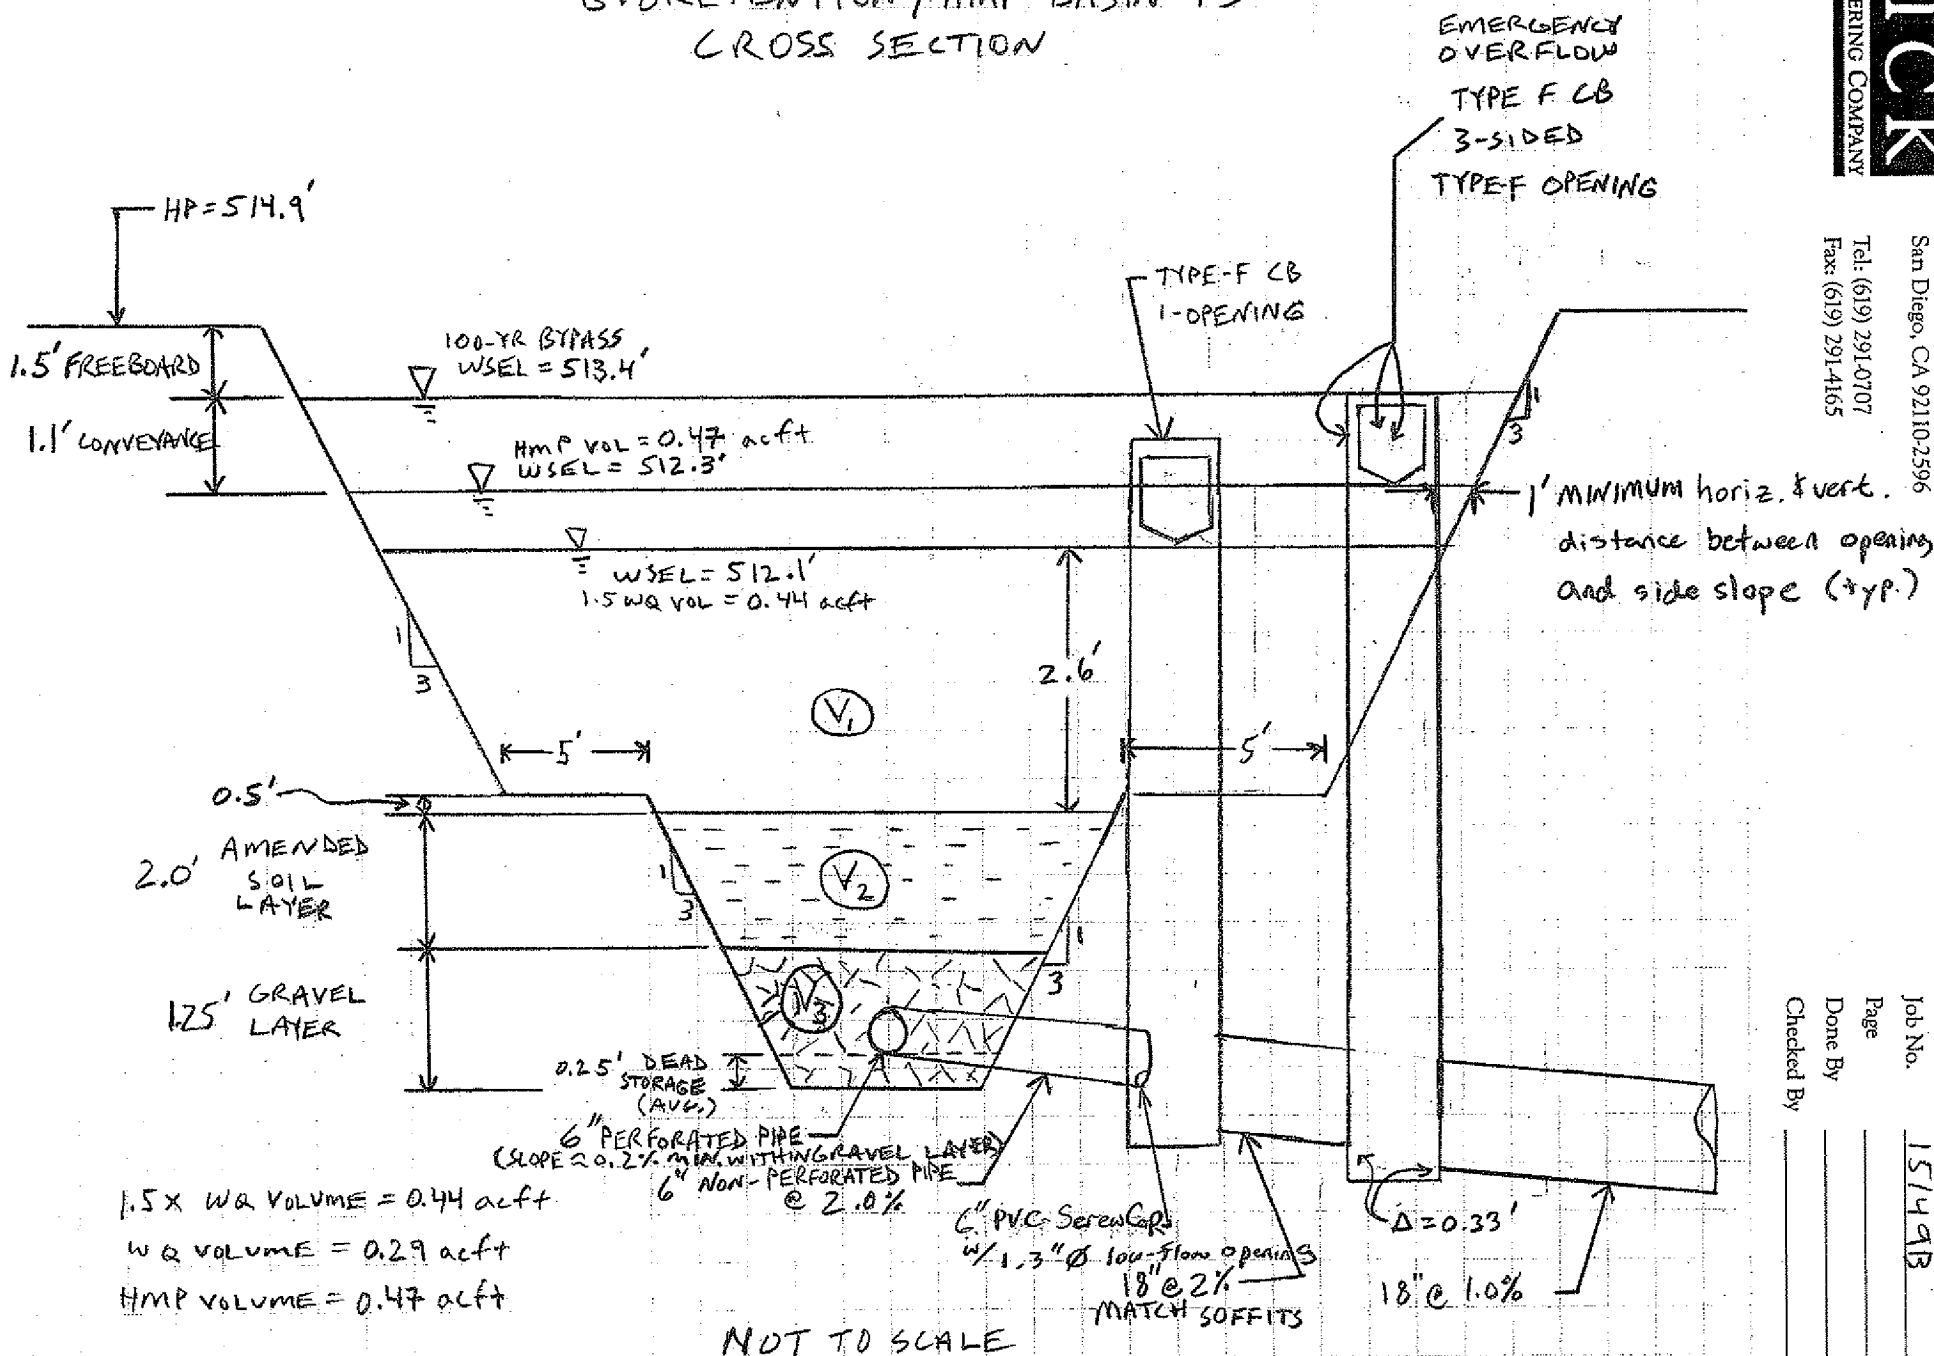 CROSS SECTION
EMERGENCY
OVERFLOW
TYPE F CB
3-SIDED
TYPE-F OPENING
HP = 514.9'
TYPE-F CB
1-OPENING
1.5' FREEBOARD
100-YR BYPASS
WSEL = 513.4'
1.1' CONVEYANCE
HMP VOL = 0.47 acft
WSEL = 512.3'
1
3
1' MINIMUM horiz. & vert.
distance between opening
and side slope (typ.)
WSEL = 512.1'
1.5 WQ VOL = 0.44 acft
1
3
2.6'
V1
5'
5'
0.5'
2.0' AMENDED
SOIL
LAYER
V2
1
3
1
3
1.25' GRAVEL
LAYER
V3
0.25' DEAD
STORAGE
(AVG.)
6" PERFORATED PIPE
(SLOPE ≈ 0.2% MIN. WITHIN GRAVEL LAYER)
6" NON-PERFORATED PIPE
@ 2.0%
6" PVC Screw Cap
w/ 1.3" Ø low-flow opening
18" @ 2%
MATCH SOFFITS
Δ = 0.33'
18" @ 1.0%
1.5 x WQ VOLUME = 0.44 acft
WQ VOLUME = 0.29 acft
HMP VOLUME = 0.47 acft
NOT TO SCALE
ICK
ERING COMPANY
San Diego, CA 92110-2596
Tel: (619) 291-0707
Fax: (619) 291-4165
Job No. 15149B
Page
Done By
Checked By